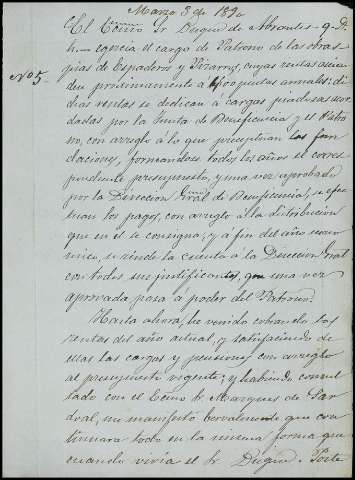 Marzo 3 de 1890
El Excmo Sr Duque de Abrantes - q. D.
h. - ejercia el cargo de Patrono de las obras
Nº 5 - pias de Espaderos y Pizarro, cuyas rentas ascien
den proximamente a pesetas anuales: di
chas rentas se dedican á cargas piadosas acor
dadas por la Junta de Beneficencia y el Patro
no, con arreglo á lo que preceptuan las fun
daciones, formandose todos los años el corres
pondiente presupuesto, y una vez aprobado
por la Direccion Gral de Beneficencia, se efec
tuan los pagos, con arreglo a la distribucion
que en el se consigna; y a fin del año econo
mico, se rinde la cuenta á la Direccion Gral
con todos sus justificantes, que una vez
aprovada pasa á poder del Patrono.
Hasta ahora, he venido cobrando las
rentas del año actual, y satisfaciendo de
ellas las cargas y pensiones con arreglo
al presupuesto vigente; y habiendo consul
tado con el Excmo Sr Marques de Sar
doal, me manifestó bervalmente que con
tinuara todo en la misma forma que
cuando vivia el Sr Duque. Pero